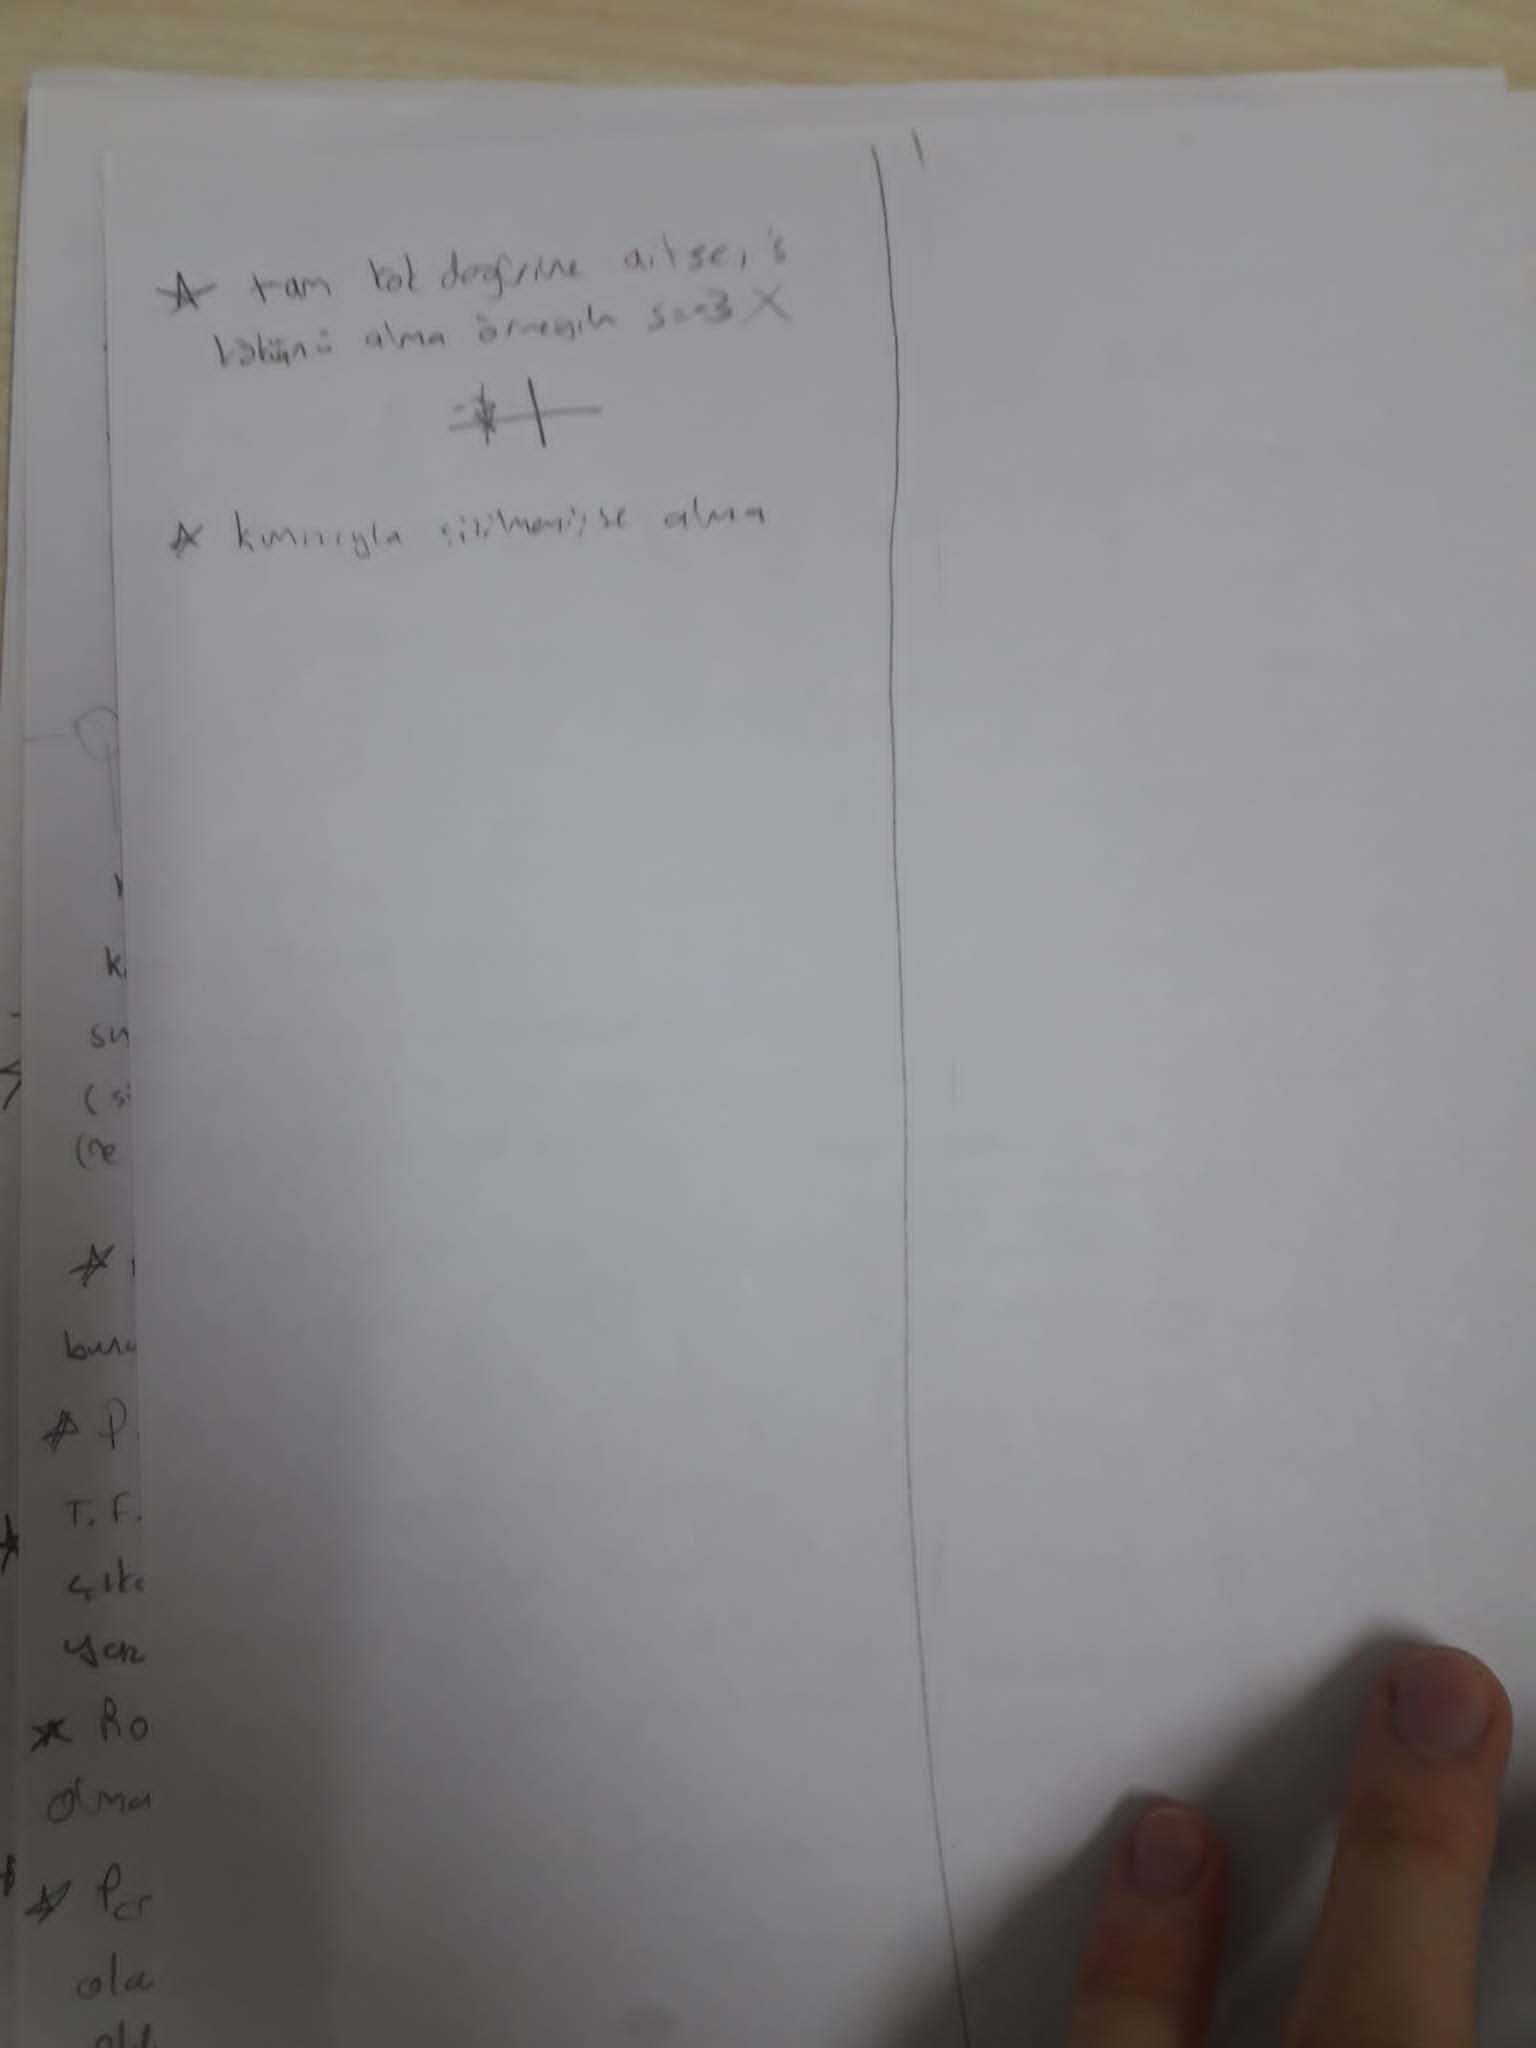 ☆ tam kök değerine aitse, 's
kökünü alma örneğin s=-3 X
☆ kırmızıyla çizilmemişse alma
k
su
(si
(ne
☆
bura
☆ P
T. F.
çıka
yan
☆ Ro
olma
☆ Per
ola